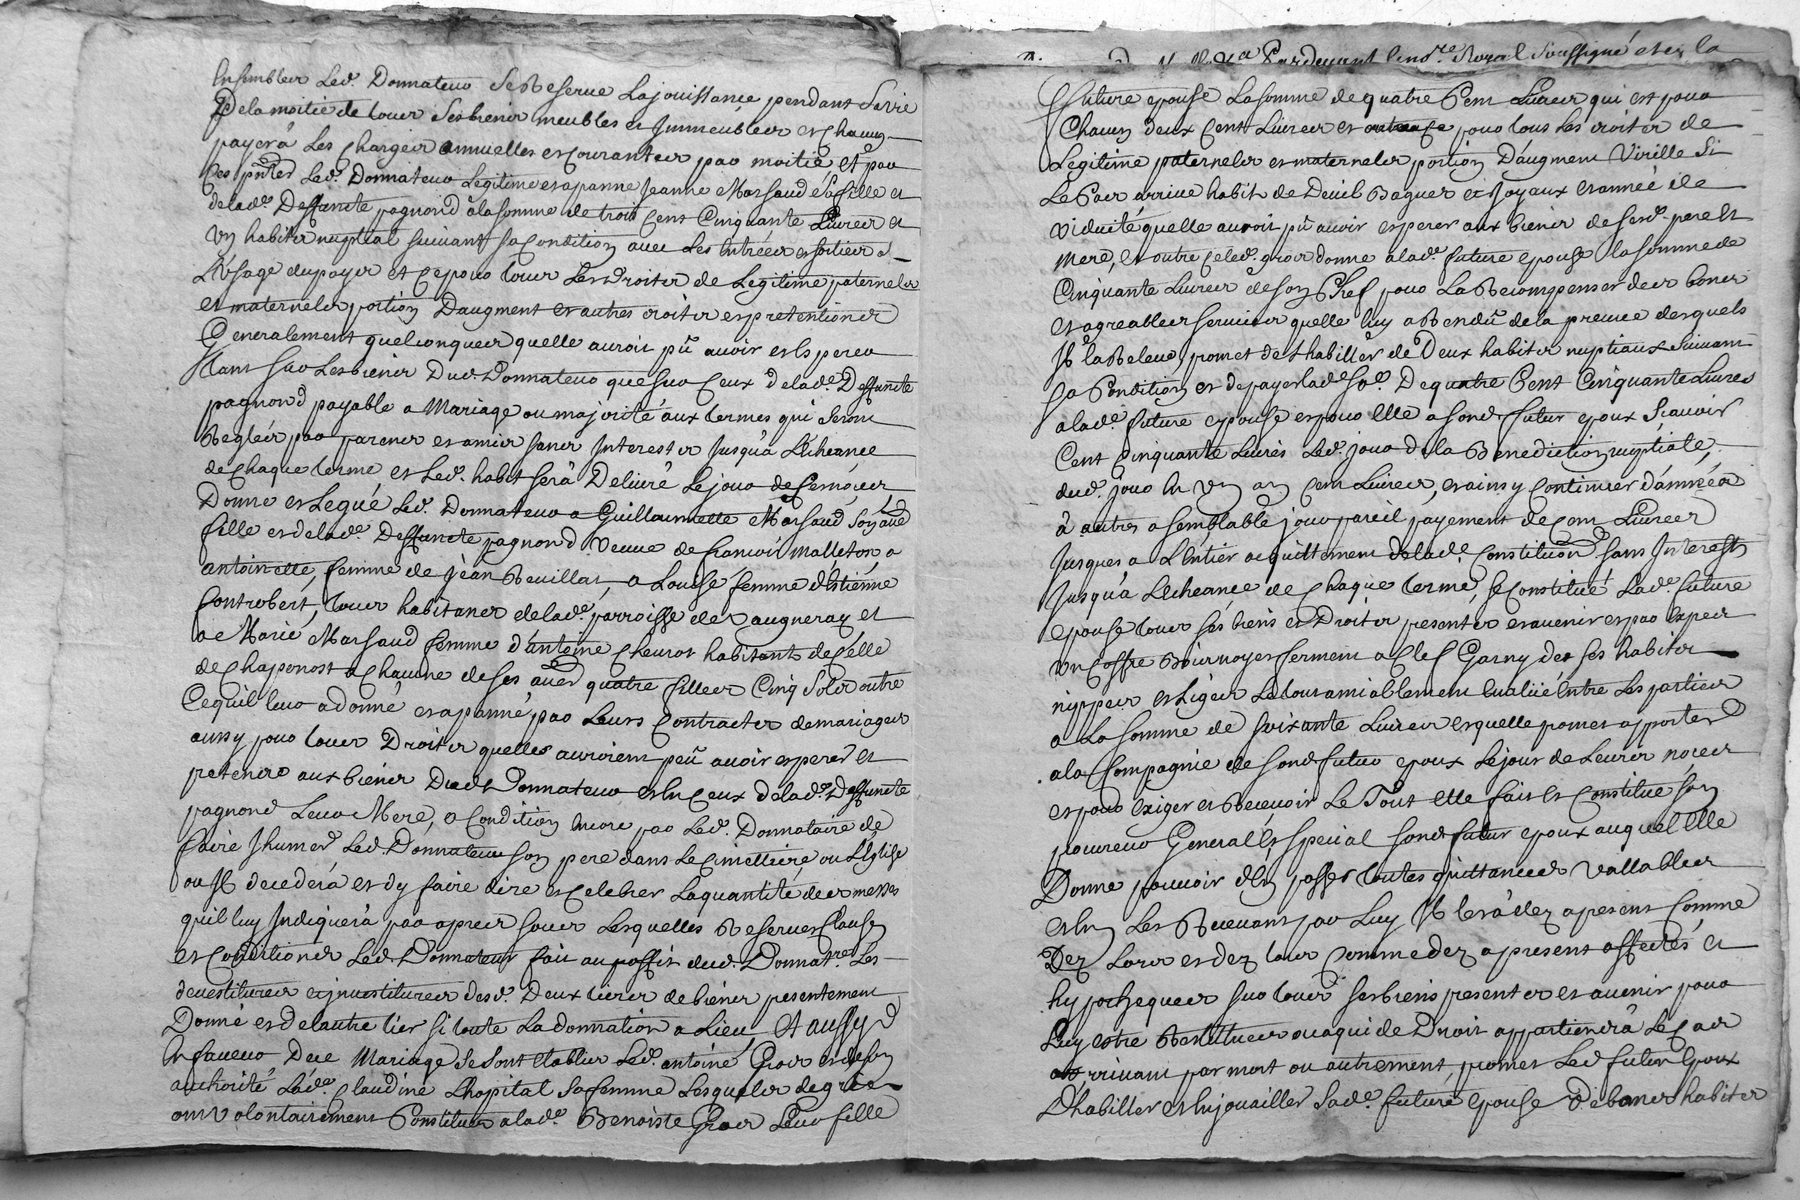 Ensembles Led. Donnateur Se Reserve La jouissance pendant Sa vie
De la moitié de tous Ses biens meubles et Immeubles et chacun
payera Les charges annuelles et courantes par moitié, Et par
Ces pntes Led. Donnateur Legitime et apanne Jeanne Marsaud sa fille et
de lad.e Deffuncte pagnond a la somme de trois Cent Cinquante Livres et
Un habit nuptial suivant sa condition avec Les Entrées et sorties a
L'Usage du payer et Ce pour tous Les Droits de Legitime paternels
et maternels portion D'augment et autres droits et pretentions
Generalement quelconques quelle auroit pû avoir et Esperer
tant sur Les biens Dud. Donnateur que sur Ceux de lad.e Deffuncte
pagnond payable a Mariage ou majorité aux termes qui Seront
Reglés par parens et amis sans Interests Jusqu'a L'Echeance
de chaque terme, et Led. habit sera Delivré Le jour des
Donne et Legue Led. Donnateur a Guillaumette Marsaud Son autre
fille et de lad.e Deffuncte pagnond Veuve de francois Malleton a
antoinette, femme de Jean Revillat, a Louise femme d'Estienne
Controbert, tous habitans de lad.e parroisse de Vaugneray et
a Marie Marsaud femme d'antoine Cheurot habitants de Celle
de Chaponost a Chacune de ses quatre filles Cinq Sols outre
Ce qu'il leur a donné et apanné par Leurs Contracts de mariages
aussy pour tous Droits quelles auroient peu avoir esperer et
pretendre aux biens Dud. Donnateur et En Ceux de lad.e Deffuncte
pagnond Leur Mere, a Condition Encore par Led. Donnataire de
faire Jhumer Led. Donnateur son pere dans Le Cimettiere ou L'Eglise
ou Il decedera et d'y faire dire et Celebrer La quantité de messes
qu'il luy Indiquera par apres sous Lesquelles Reserves Clauses
et Conditions Led. Donnateur fait au proffit dud. Donnat.re Les
devestitures et investitures desd. Deux tiers de biens presentement
Donné et de l'autre tiers si toute La donnation a Lieu Et aussy
En faveur Duce Mariage Se sont Etablis Led. antoine Gros et de son
authorité Lad.e Claudine L'hopital Sa femme Lesquels de gré
ont volontairement Constitué a lad.e Benoiste Gros Leur fille
Pardevant Le no.re Royal Soussigné et en la
future epouse La somme de quatre Cent Livres qui est pour
Chacun deux Cent Livres et pour tous Les droits de
Legitime paternels et maternels portion D'augment Virille Si
Le Cas arrive habit de Deuil Bagues et Joyaux et année de
viduité quelle auroit pû avoir esperer aux biens de sesd. pere Et
mere, Et outre Ce led. gros donne a lad.e future epouse La somme de
Cinquante Livres de son Chef pour La Recompenser des bons
et agreables services quelle luy a Rendû de la preuve desquels
Il la Releve, promet de L'habiller de Deux habits nuptiaux suivant
Sa Condition et de payer lad.e So.e De quatre Cent Cinquante Livres
a lad.e future epouse et pour Elle a sond. futur epoux Scavoir
Cent Cinquante Livres Led. jour de la Benediction nuptiale,
dud. jour En Un an Cent Livres, et ainsy Continuer d'année
a autres a semblable jour pareil payement de Cent Livres
Jusques a L'Entier acquittement de lad.e Constitution sans Interests
Jusqu'a L'Echeance de Chaque terme, Se Constitue Lad.e future
epouse tous ses biens et Droits presents et avenir et par Expres
un Coffre Bois noyer fermant a Clef Garny de ses habits
nippes et Linges Le tout amiablement Evalüé Entre Les parties
a La somme de soixante Livres et quelle promet apporter
a la Compagnie de sond. futur epoux Le jour de Leurs noces
et pour Exiger et Recevoir Le Tout Elle fait Et Constitue son
procureur General Et special sond. futur epoux auquel Elle
Donne pouvoir d'En passer toutes quittances Vallables
et En Les Recevant par Luy Il les a dez a present Comme
Dez Lors et dez lors Comme dez a present affectés et
hypotheques sur tous ses biens presents et avenir pour
Luy estre Restitues ou a qui de Droit appartiendra Le Cas
arrivant par mort ou autrement, promet Led. futur Epoux
D'habiller et Enjouailler Sad.e future Epouse De bons habits